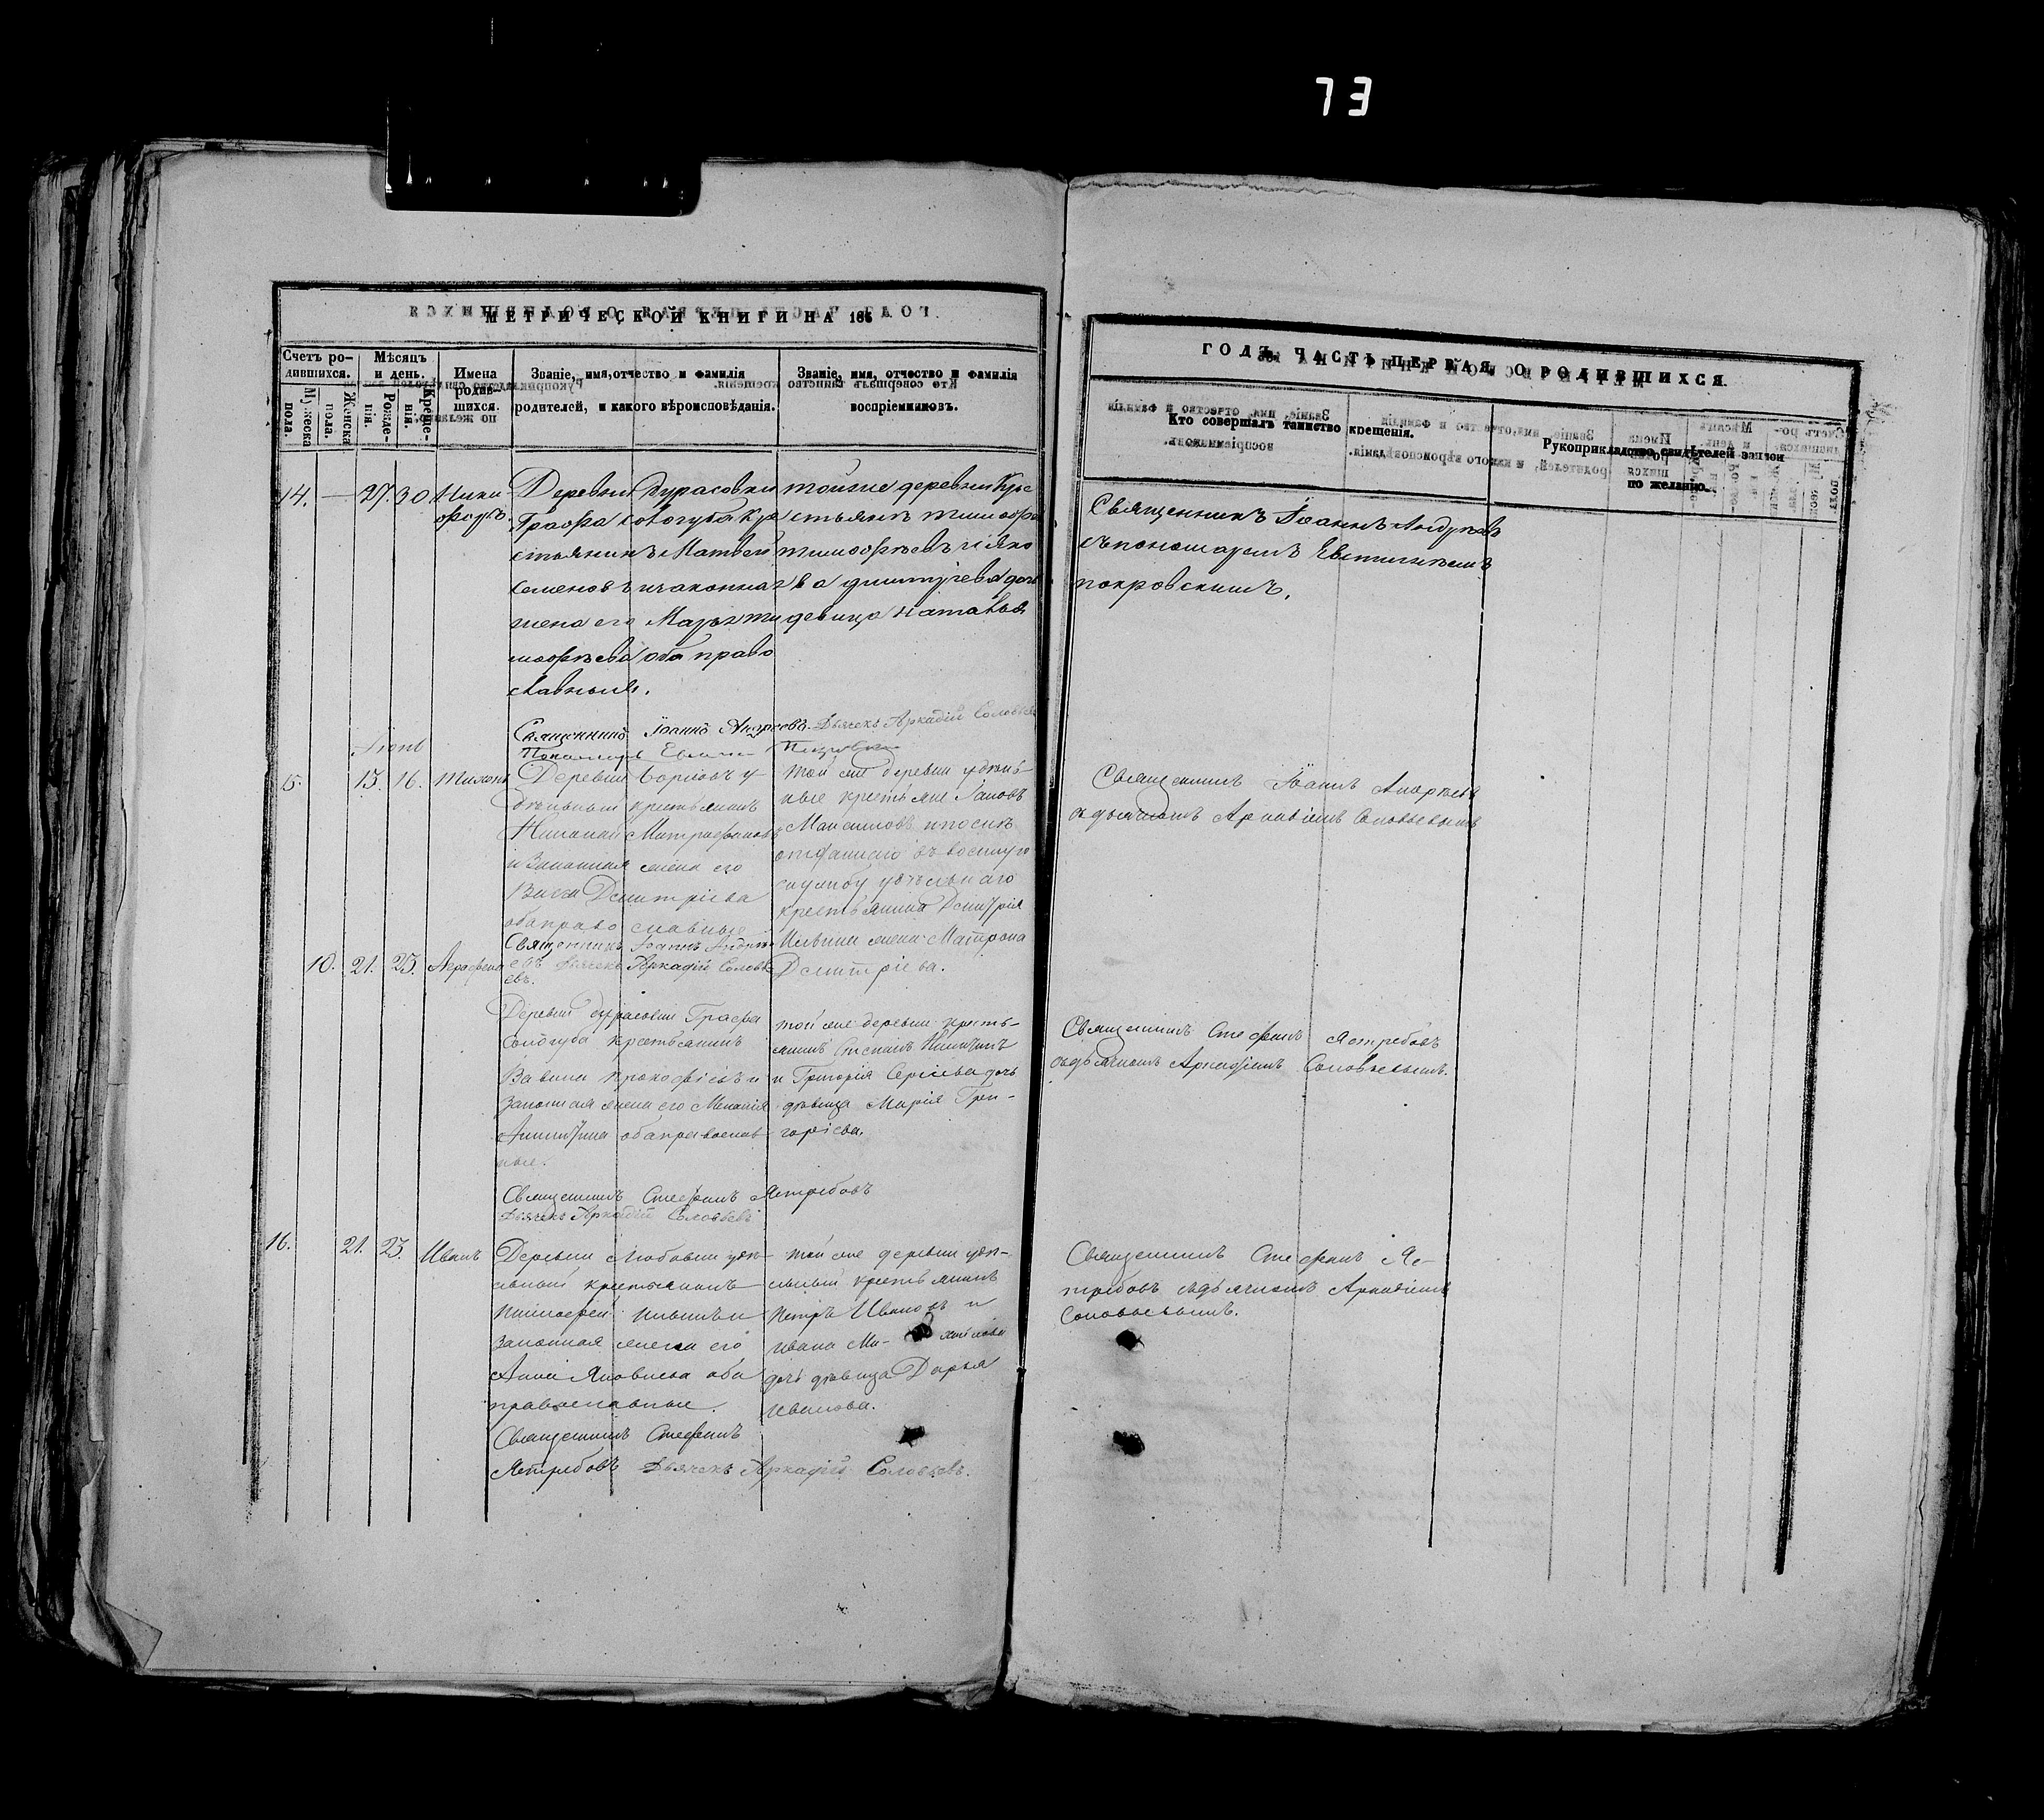 73
МЕТРИЧЕСКОЙ КНИГИ НА 186
Счетъ ро-
дившихся.
Мужеска
пола.
Женска
пола.
Мѣсяцъ
и день.
Рожде-
нія.
Креще-
нія.
Имена
родив-
шихся.
Званіе, имя, отчество и фамилія
родителей, и какого вѣроисповѣданія.
Званіе, имя, отчество и фамилія
воспріемниковъ.
14. — 27. 30 Ники
форъ.
Деревни Дурасовки
Графа Сологуба Кре
стьянинъ Матвей
Семеновъ и законная
жена его Марья Ти
мофѣева оба право
славныя.
тойже деревни Кре
стьянъ Тимофей
Тимофѣевъ и Яко
ва Дмитріева дочь
девица Наталья
Священникъ Іоаннъ Андреевъ. Дьячекъ Аркадій Соловьевъ
Пономарь
Іюнь
15. 15. 16. Тихонъ
Деревни у-
дѣльный крестьянинъ
Николай Митрофановъ
и Законная жена его
Дмитріева
оба православные
Священникъ Іоаннъ Андре-
евъ Дьячекъ Аркадій Соловь
евъ.
той же деревни удѣль-
ные крестьяне
Максимовъ
въ военную
службу удѣльнаго
крестьянина Дмитрія
Ильина жена Матрона
Дмитріева.
10. 21. 23. Аграфена
Деревни Дурасовки Графа
Сологуба крестьянинъ
Прокофіевъ и
Законная жена его Меланія
Никитина оба православ-
ные.
той же деревни кресть-
янинъ Степанъ Никитинъ
и Григорія Сергіева дочь
дѣвица Марія Гри-
горіева.
Священникъ Стефанъ Ястребовъ
Дьячекъ Аркадій Соловьевъ
16. 21. 23. Иванъ
Деревни Любовки удѣ-
льный крестьянинъ
Тимофей Ильинъ и
Законная жена его
Анна Яковлева оба
православные.
Священникъ Стефанъ
Ястребовъ Дьячекъ Аркадій Соловьевъ.
той же деревни удѣ-
льный крестьянинъ
Петръ Ивановъ и
Ивана Ми- хайлова
дочь дѣвица Дарья
Иванова.
ГОДЪ, ЧАСТЬ ПЕРВАЯ, О РОДИВШИХСЯ.
Кто совершалъ таинство крещенія.
Рукоприкладство свидѣтелей записи
по желанію.
Священникъ Іоаннъ Андреевъ
съ пономаремъ Евтихіемъ
Покровскимъ.
Священникъ Іоаннъ Андреевъ
съ дьячкомъ Аркадіемъ Соловьевымъ
Священникъ Стефанъ Ястребовъ
съ дьячкомъ Аркадіемъ Соловьевымъ.
Священникъ Стефанъ Яс-
требовъ съ дьячкомъ Аркадіемъ
Соловьевымъ.